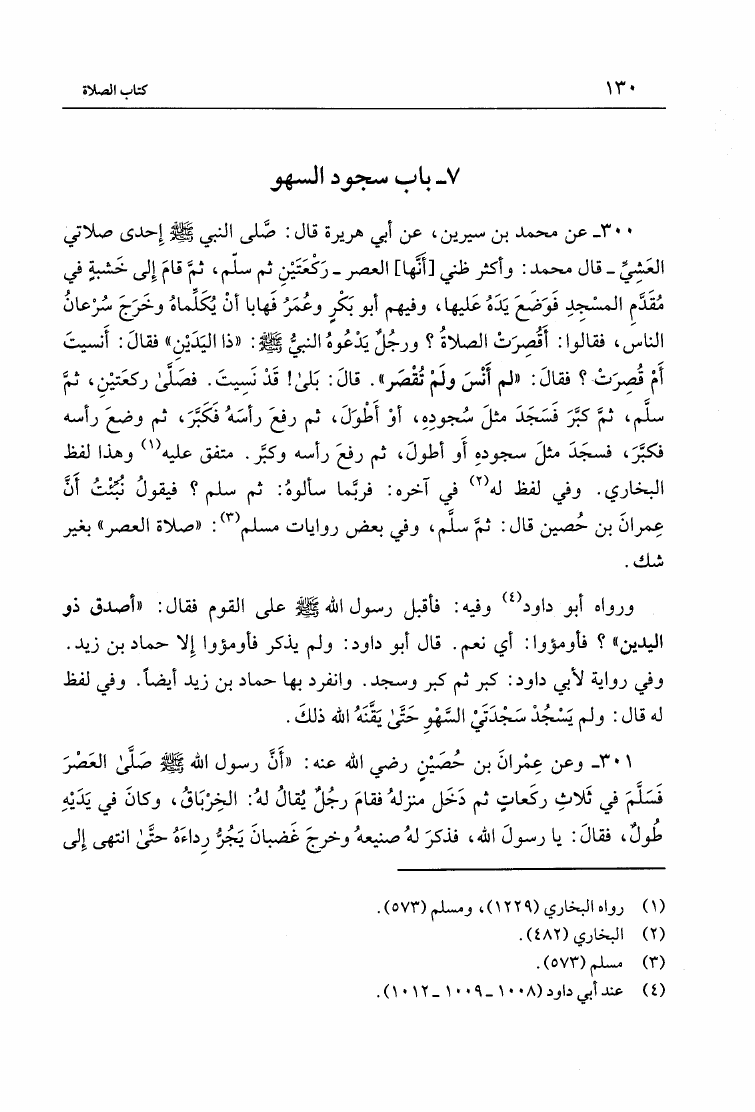 ١٣٠ كتاب الصلاة
٧ـ باب سجود السهو
٣٠٠ـ عن محمد بن سيرين، عن أبي هريرة قال: صَّلى النبي ﷺ إحدى صلاتي
العَشِيِّ ـ قال محمد: وأكثر ظني [أَنَّها] العصر ـ رَكْعَتَيْنِ ثم سلّم، ثمَّ قامَ إلى خَشبةٍ في
مُقَدَّمِ المسْجدِ فَوَضَعَ يَدَهُ عَليها، وفيهم أبو بَكْرٍ وعُمَرُ فَهابا أنْ يُكَلِّماهُ وخَرَجَ سُرْعانُ
الناس، فقالوا: أَقُصِرَتْ الصلاةُ؟ ورجُلٌ يَدْعُوهُ النبيُّ ﷺ: «ذا اليَدَيْنِ» فقالَ: أنسيتَ
أمْ قُصِرَتْ؟ فقالَ: «لم أَنْسَ ولَمْ تُقْصَر». قالَ: بَلىٰ! قَدْ نَسِيتَ. فصَلَّى ركعتيْنِ، ثمَّ
سلَّم، ثمَّ كبَّرَ فَسَجَدَ مثلَ سُجودِهِ، أوْ أطْوَلَ، ثم رفعَ رأسَهُ فَكَبَّرَ، ثم وضعَ رأسه
فكبَّرَ، فسجَدَ مثلَ سجودهِ أو أطولَ، ثم رفعَ رأسه وكبَّر. متفق عليه(١) وهذا لفظ
البخاري. وفي لفظ له(٢) في آخره: فربَّما سألوهُ: ثم سلم؟ فيقولُ نُبِّئْتُ أنَّ
عِمرانَ بن حُصين قال: ثمَّ سلَّم، وفي بعض روايات مسلم(٣): «صلاة العصر» بغير
شك.
ورواه أبو داود(٤) وفيه: فأقبل رسول الله ﷺ على القوم فقال: «أصدق ذو
اليدين»؟ فأومؤوا: أي نعم. قال أبو داود: ولم يذكر فأومؤوا إلا حماد بن زيد.
وفي رواية لأبي داود: كبر ثم كبر وسجد. وانفرد بها حماد بن زيد أيضاً. وفي لفظ
له قال: ولم يَسْجُدْ سَجْدَتَيْ السَّهْوِ حَتَّىٰ يَقَّنَهُ الله ذلكَ.
٣٠١ـ وعن عِمْرانَ بن حُصَيْنٍ رضي الله عنه: «أنَّ رسول الله ﷺ صَلَّىٰ العَصْرَ
فَسَلَّمَ في ثَلاثِ ركَعاتٍ ثم دَخَل منزلهُ فقامَ رجُلٌ يُقالُ لهُ: الخِرْبَاقُ، وكانَ في يَدَيْهِ
طُولٌ، فقالَ: يا رسولَ الله، فذكرَ لهُ صنيعهُ وخرجَ غَضبانَ يَجُرُّ رِداءَهُ حتَّىٰ انتهى إلى
(١) رواه البخاري (١٢٢٩)، ومسلم (٥٧٣).
(٢) البخاري (٤٨٢).
(٣) مسلم (٥٧٣).
(٤) عند أبي داود (١٠٠٨ ـ ١٠٠٩ ـ ١٠١٢).